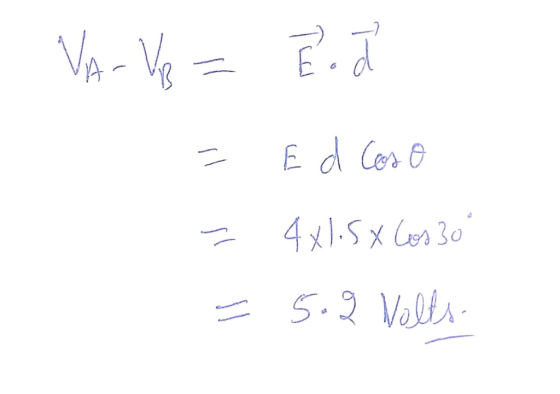 V_A - V_B = \vec{E} \cdot \vec{d}
= E d Cos θ
= 4 x 1.5 x Cos 30°
= 5.2 Volts.